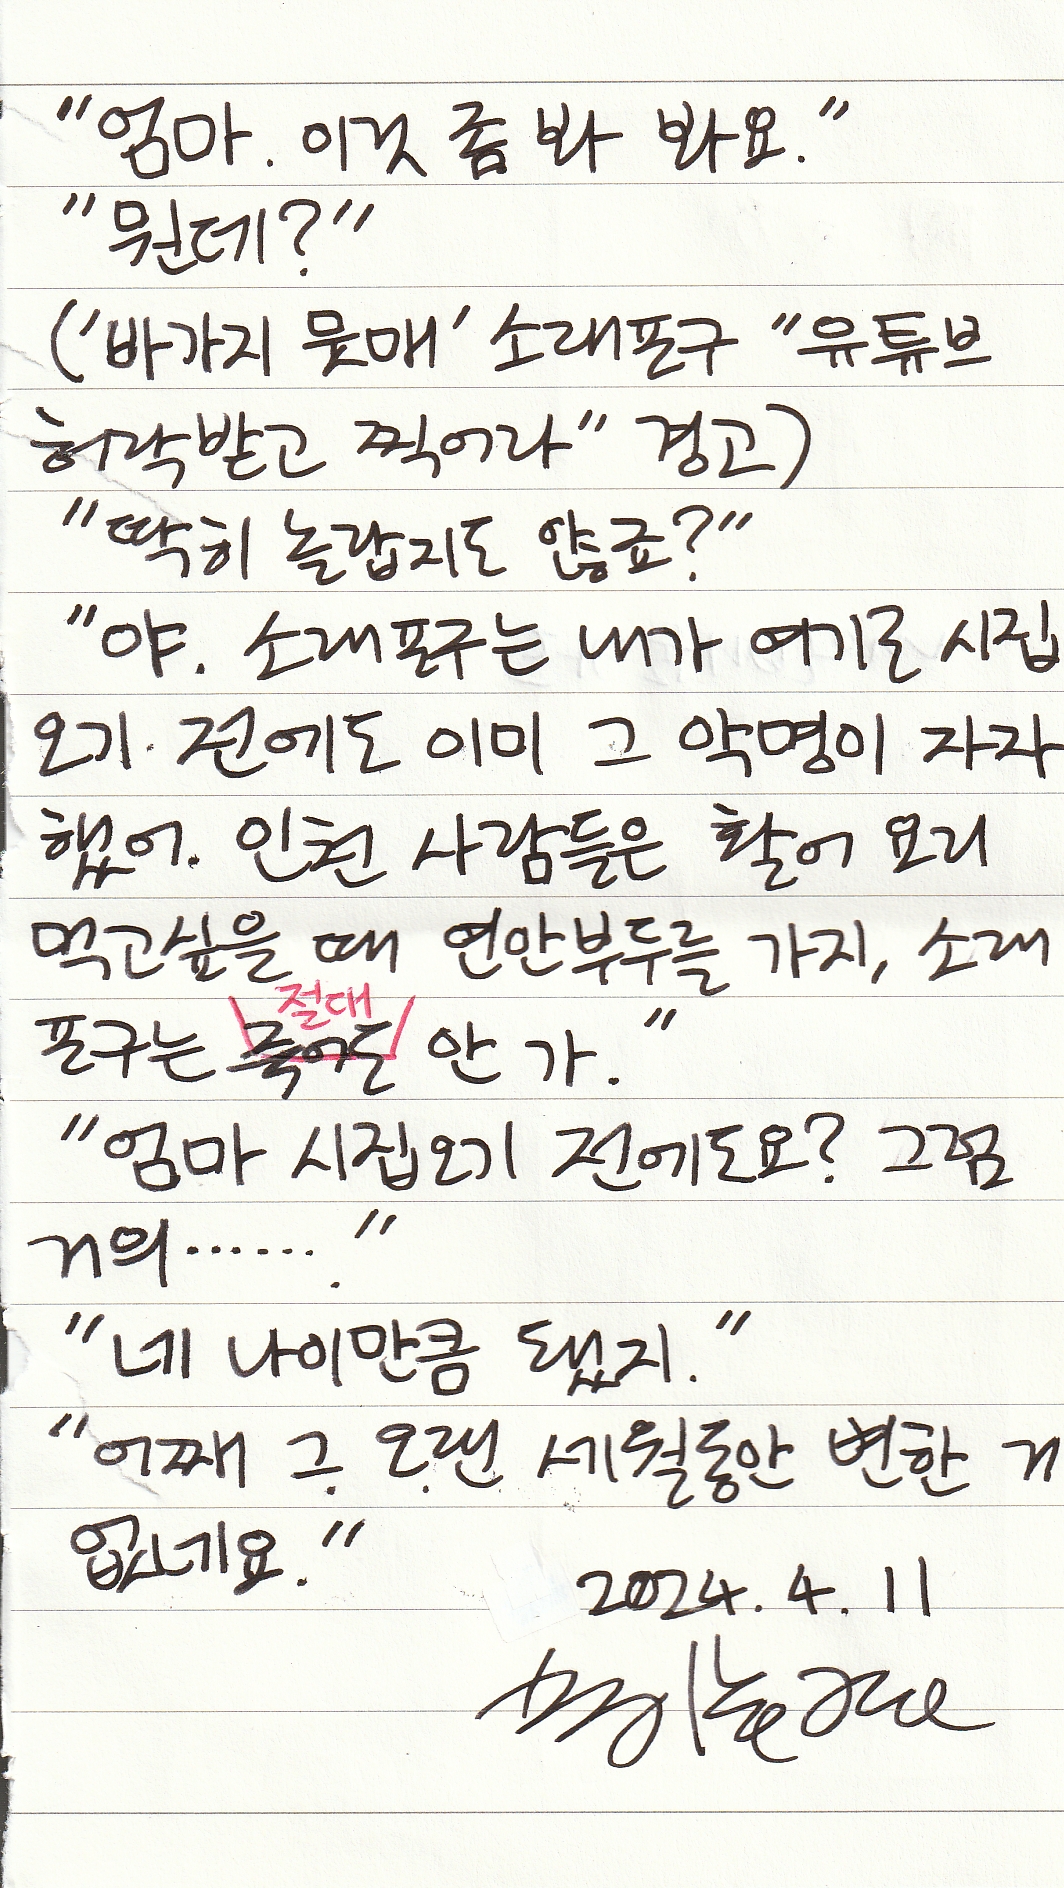 "엄마. 이것 좀 봐 봐요."
"뭔데?"
('바가지 뭇매' 소래포구 "유튜브
허락받고 찍어라" 경고)
"딱히 놀랍지도 않죠?"
"야. 소래포구는 내가 여기로 시집
오기 전에도 이미 그 악명이 자자
했어. 인천 사람들은 활어 요리
먹고싶을 때 연안부두를 가지, 소래
절대
포구는 죽어도 안 가."
"엄마 시집오기 전에도요? 그럼
거의……."
"네 나이만큼 됐지."
"어째 그 오랜 세월동안 변한 게
없네요."
2024. 4. 11